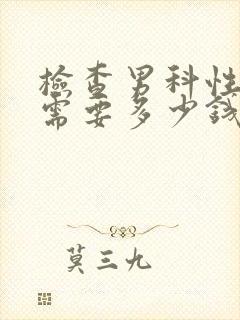 檢查男科性
需要多少錢
莫三九